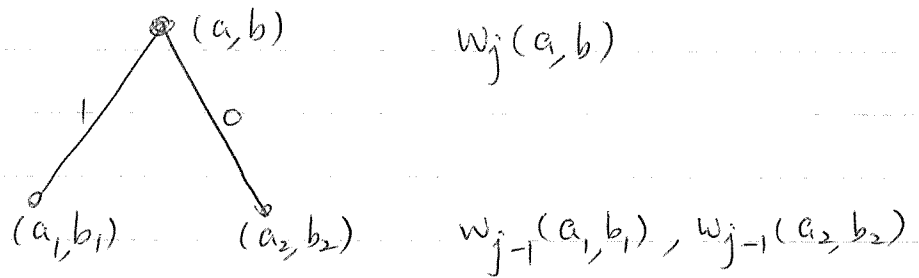 (a,b) w_j(a,b)
1 0
(a_1,b_1) (a_2,b_2) w_{j-1}(a_1,b_1), w_{j-1}(a_2,b_2)